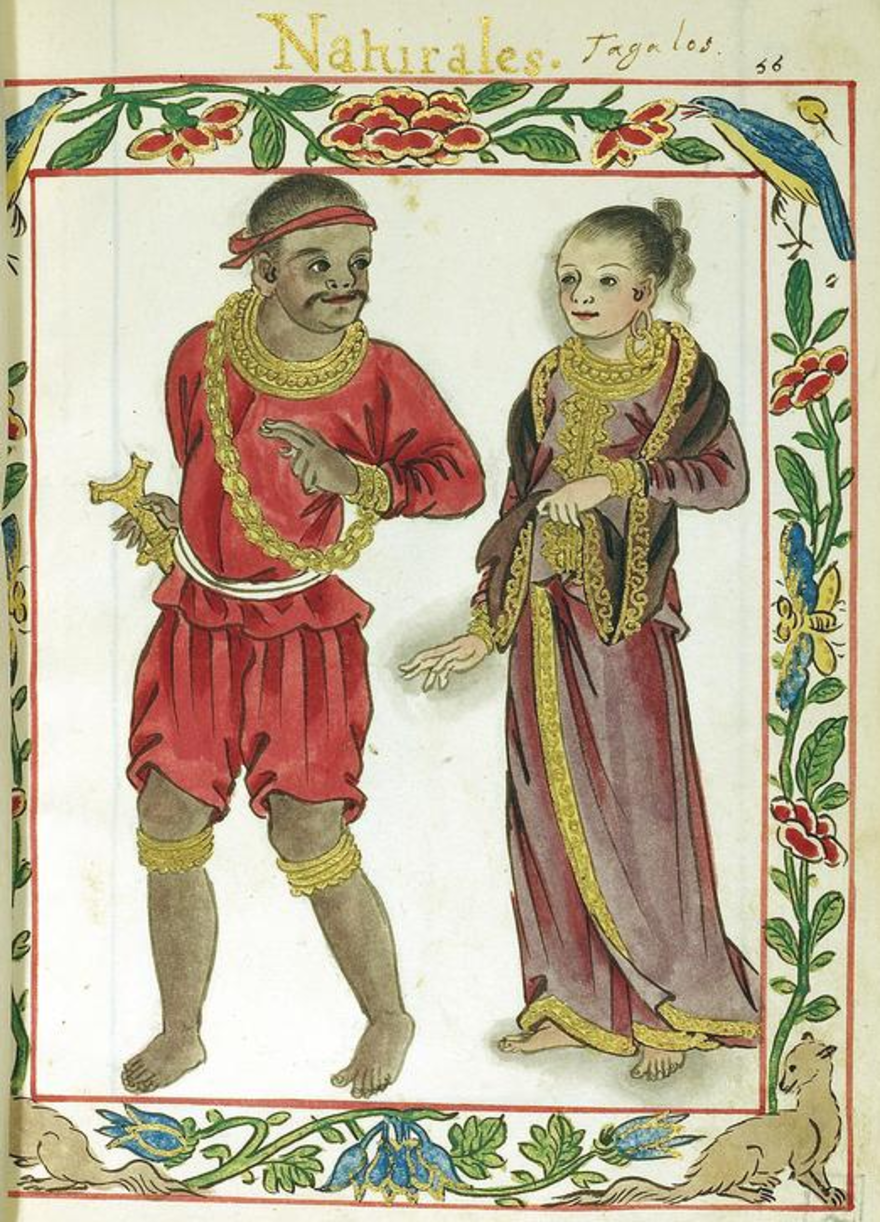 Naturales. Tagalos. 56